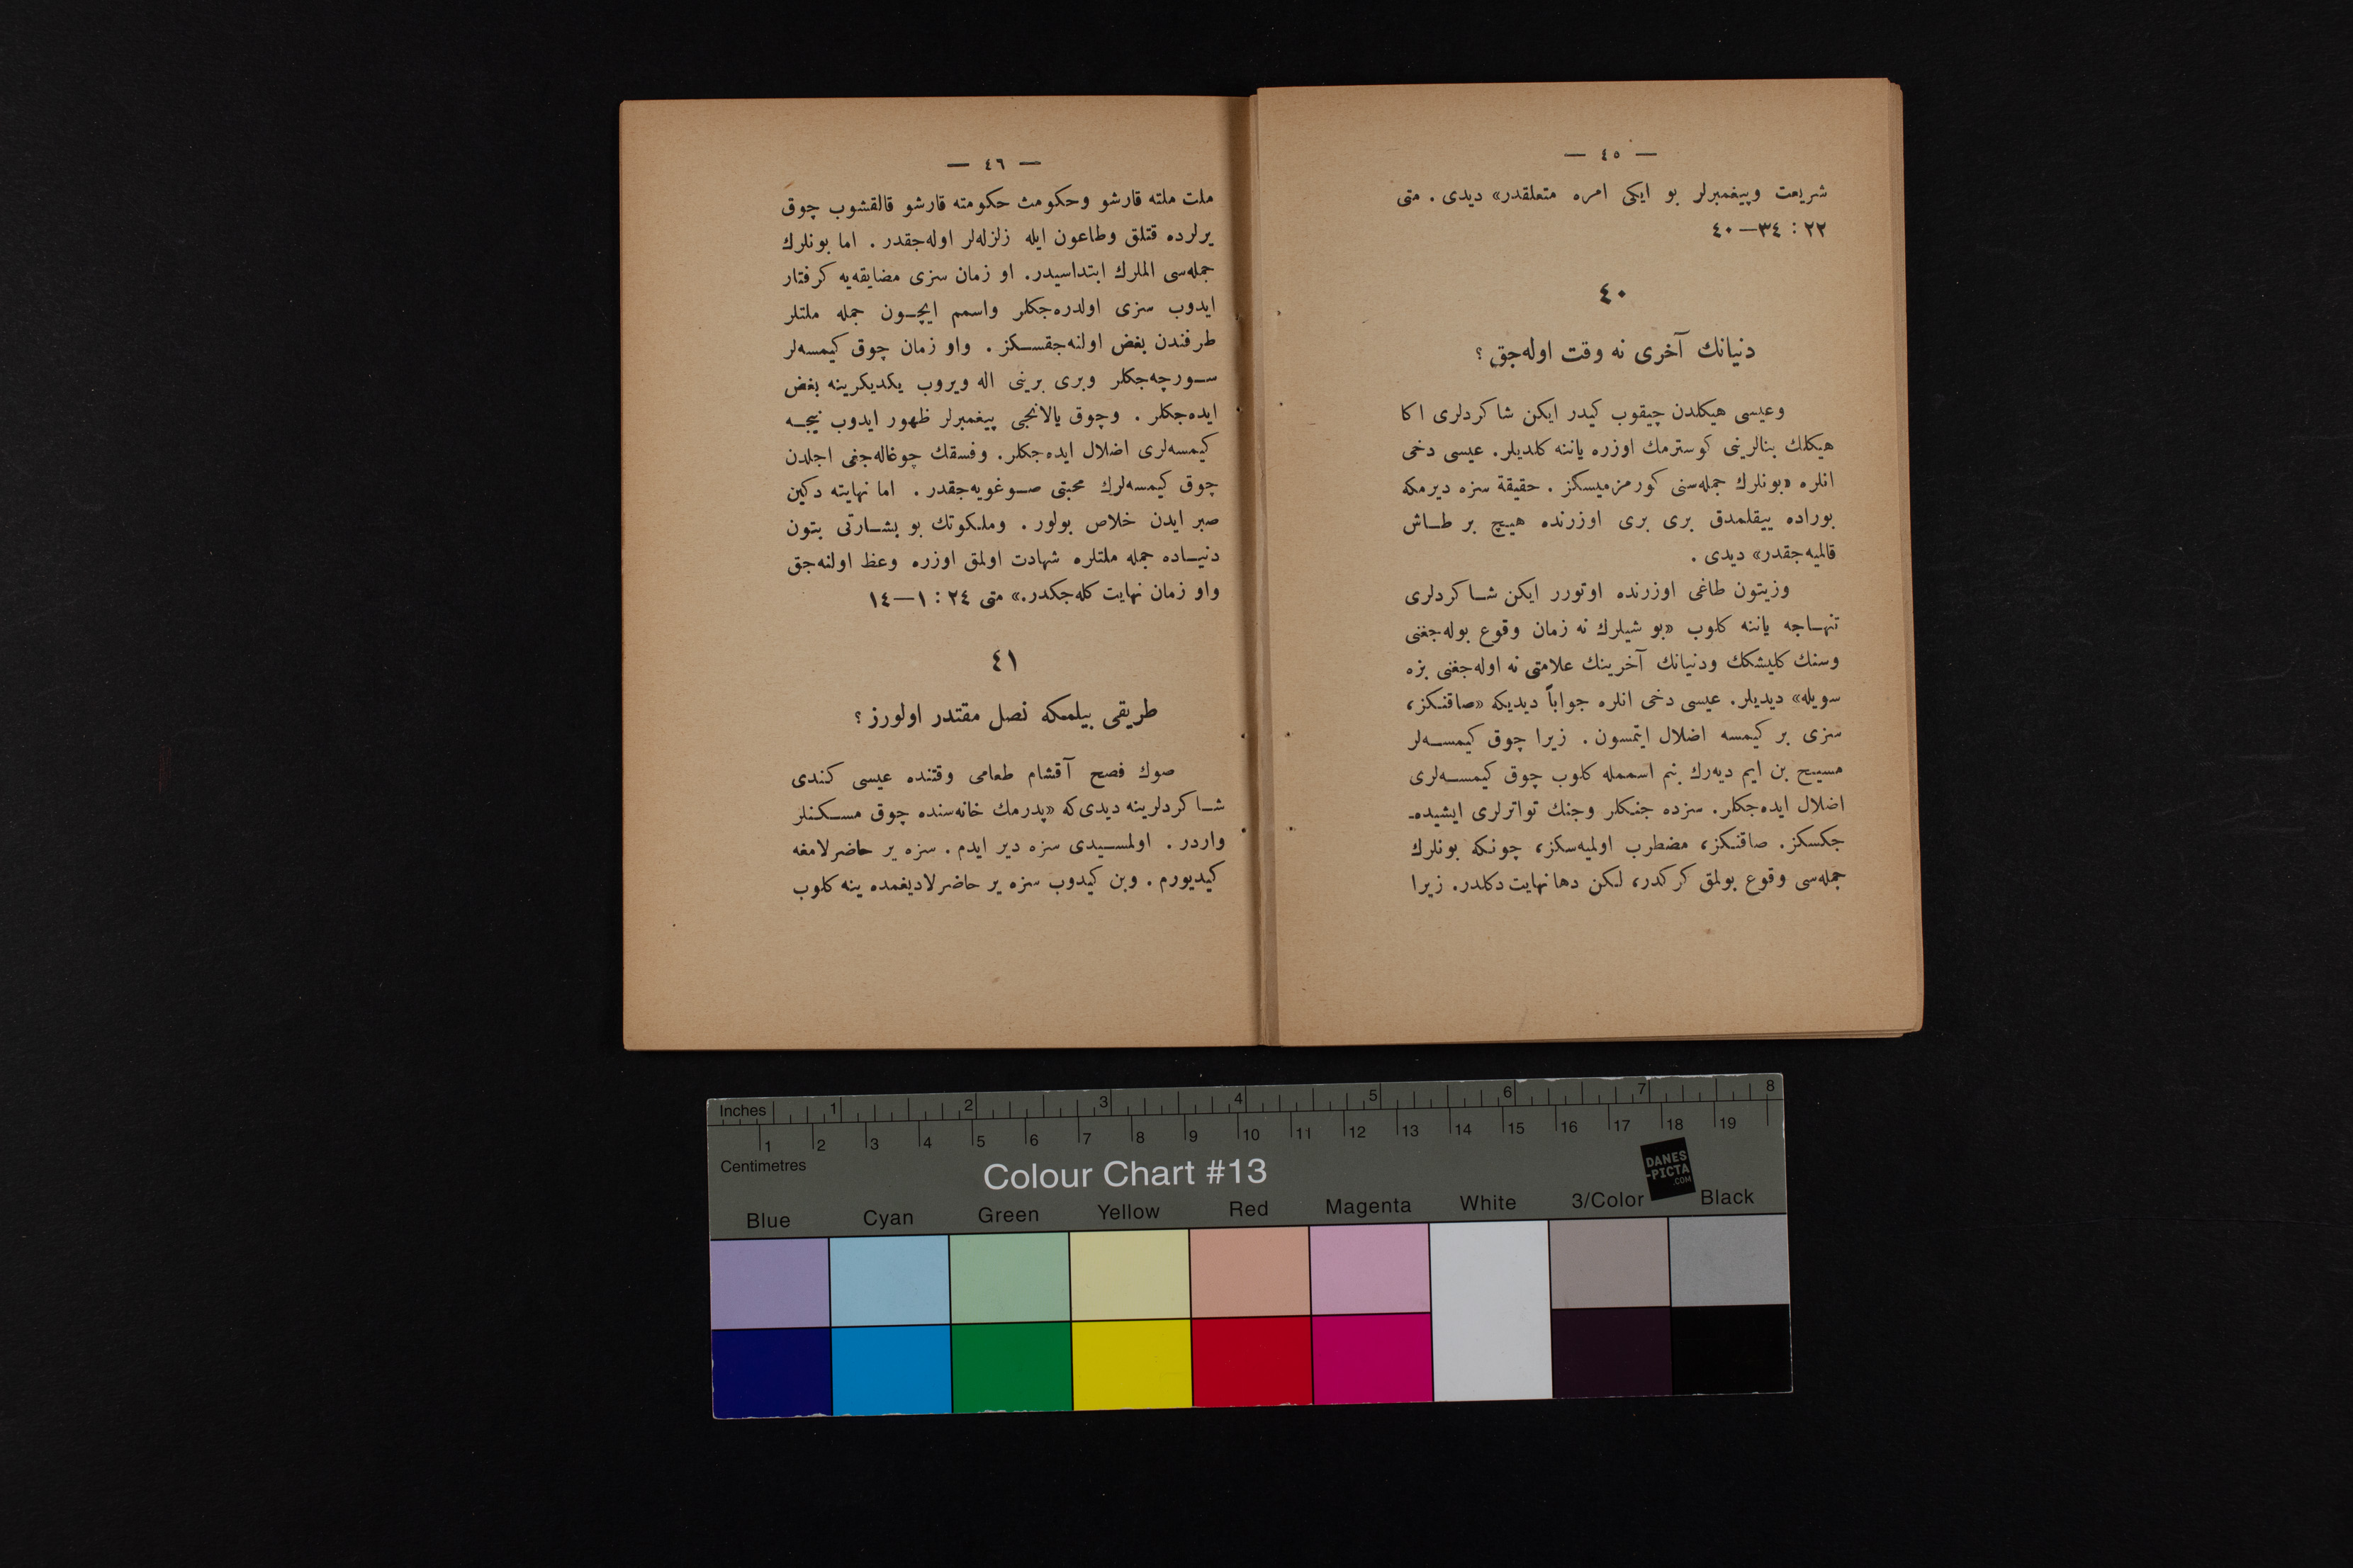 — ٤٥ —
شریعت وپیغمبرلر بو ایکی امره متعلقدر» دیدی . متی
٢٢ : ٣٤—٤٠
٤٠
دنیانك آخری نه وقت اوله‌جق ؟
وعیسی هیکلدن چیقوب کیدر ایکن شاکردلری اکا
هیکلك بنالرینی کوسترمك اوزره یاننه کلدیلر. عیسی دخی
انلره «بونلرك جمله‌سنی کورمزمیسکز . حقیقة سزه دیرمکه
بوراده ییقلمدق بری بری اوزرنده هیـچ بر طـاش
قالمیه‌جقدر» دیدی .
وزیتون طاغی اوزرنده اوتورر ایکن شـاکردلری
تنهـاجه یاننه کلوب «بو شیلرك نه زمان وقوع بوله‌جغنی
وسنك کلیشكك ودنیانك آخرینك علامتی نه اوله‌جغنی بزه
سویله» دیدیلر. عیسی دخی انلره جواباً دیدیکه «صاقنـکز،
سزی بر کیمسه اضلال ایتمسون . زیرا چوق کیمسـه‌لر
مسیـح بن ایم دیه‌رك بنم اسممله کلوب چوق کیمسـه‌لری
اضلال ایده‌جکلر. سزده جنـکلر وجنك تواترلری ایشیده‌ـ
جکسکز. صاقنـکز، مضطرب اولمیه‌سکز، چونـکه بونلرك
جمله‌سی وقوع بولمق کرکدر، لـکن دها نهایت دکلدر. زیرا
— ٤٦ —
ملت ملته قارشو وحکومت حکومته قارشو قالقشوب چوق
یرلرده قتلق وطاعون ایله زلزله‌لر اوله‌جقدر . اما بونلرك
جمله‌سی الملرك ابتداسیدر. او زمان سزی مضایقه‌یه کرفتار
ایدوب سزی اولدره‌جکلر واسمم ایچـون جمله ملتلر
طرفندن بغض اولنه‌جقسـکز . واو زمان چوق کیمسه‌لر
سـورچه‌جکلر وبری برینی اله ویروب یکدیکرینه بغض
ایده‌جکلر . وچوق یالانجی پیغمبرلر ظهور ایدوب نیجـه
کیمسه‌لری اضلال ایده‌جکلر. وفسقك چوغاله‌جغی اجلدن
چوق کیمسه‌لرك محبتی صـوغویه‌جقدر . اما نهایته دکین
صبر ایدن خلاص بولور . وملـکوتك بو بشـارتی بتون
دنیـاده جمله ملتلره شهادت اولمق اوزره وعظ اولنه‌جق
واو زمان نهایت کله‌جکدر.» متی ٢٤ : ١—١٤
٤١
طریقی بیلمـکه نصل مقتدر اولورز ؟
صوك فصح آقشام طعامی وقتنده عیسی کندی
شـاکردلرینه دیدی‌که «پدرمك خانه‌سنده چوق مسـکنلر
واردر . اولمسـیدی سزه دیر ایدم . سزه یر حاضرلامغه
کیدیورم . وبن کیدوب سزه یر حاضرلادیغمده ینه کلوب
Inches 1 2 3 4 5 6 7 8
1 2 3 4 5 6 7 8 9 10 11 12 13 14 15 16 17 18 19
Centimetres
Colour Chart #13
DANES
-PICTA
.COM
Blue Cyan Green Yellow Red Magenta White 3/Color Black